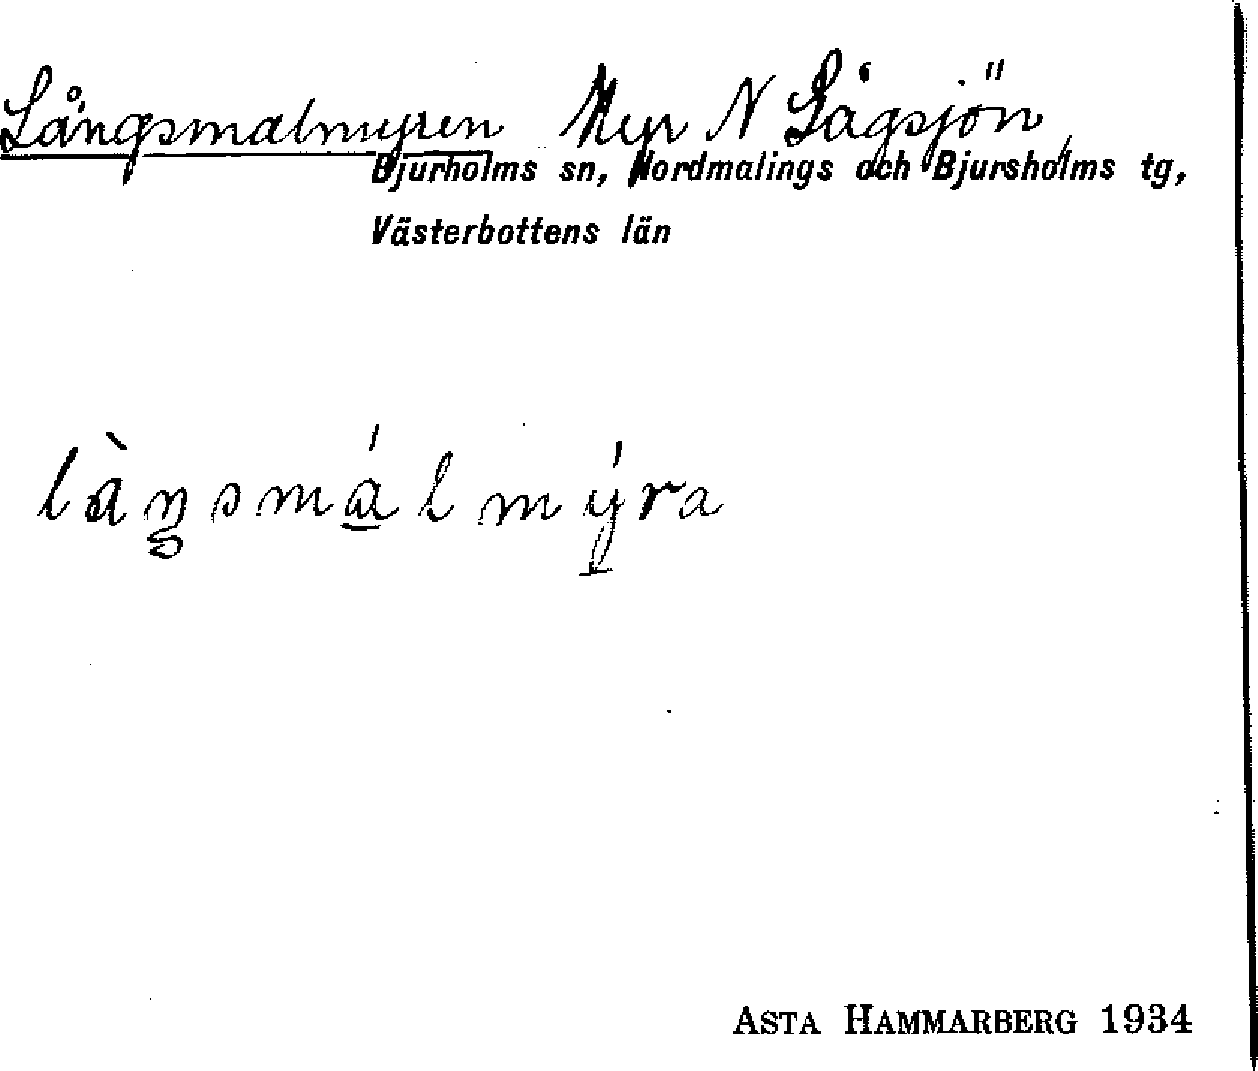 Långsmalmyren Myr N Lågsjön
Bjurholms sn, Nordmalings och Bjursholms tg,
Västerbottens län
làŋsmálmýra
ASTA HAMMARBERG 1934